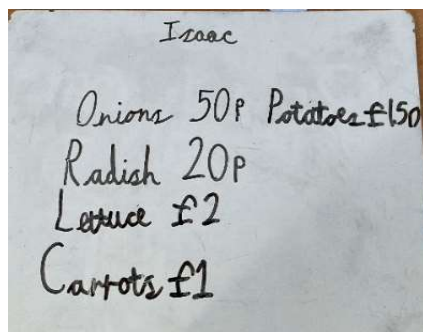 Isaac
Onions 50p Potatoes £1.50
Radish 20p
Lettuce £2
Carrots £1